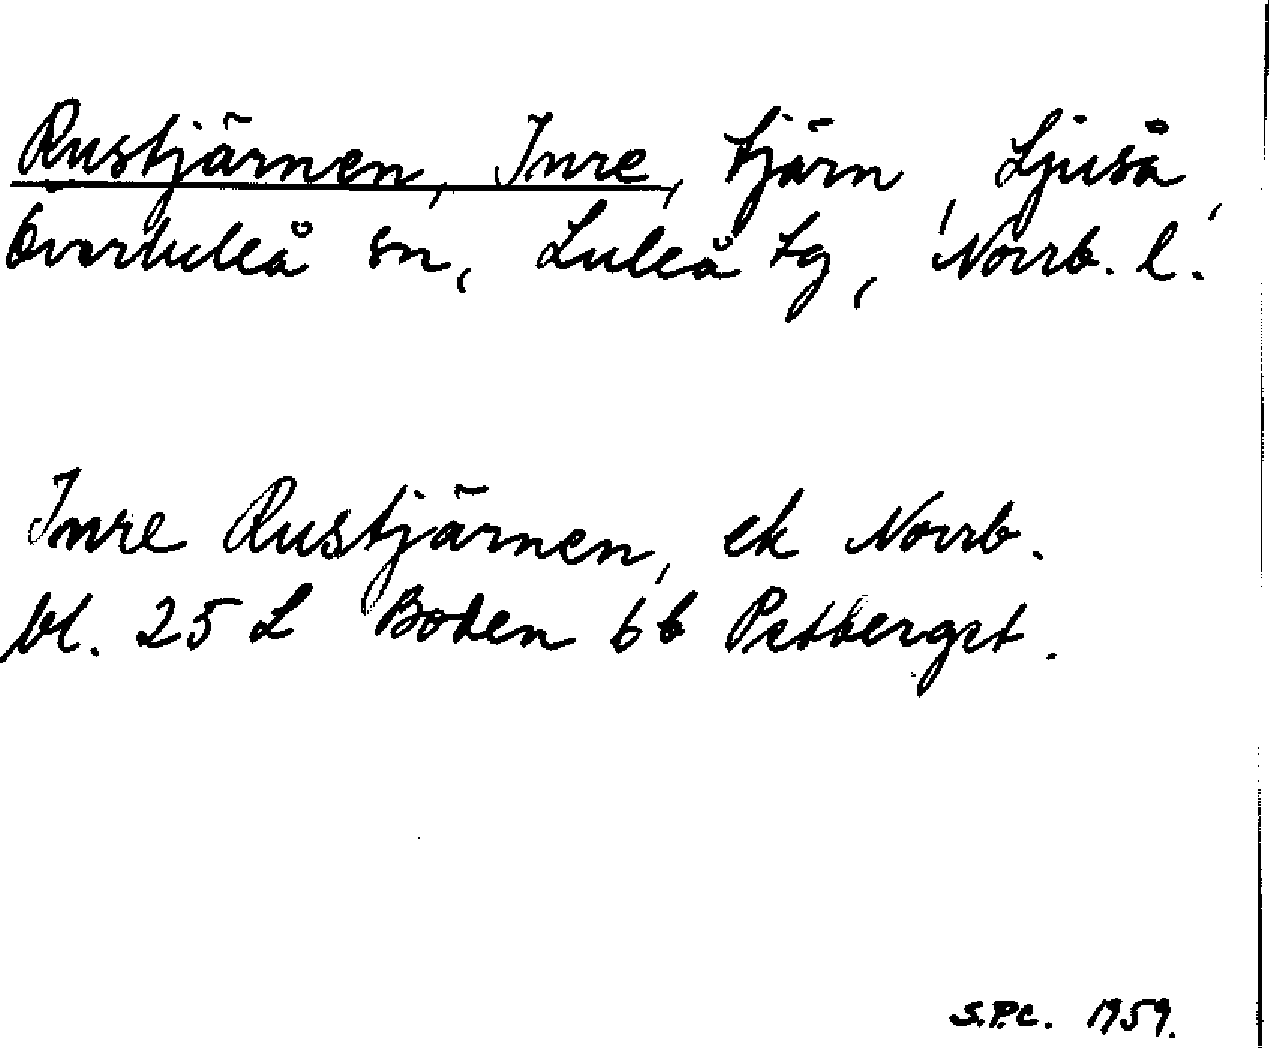 Rustjärnen, Inre, tjärn, Ljuså,
Överluleå sn, Luleå tg, Norrb. l.
Inre Rustjärnen, ek Norrb.
bl. 25 L Boden 6b Petberget.
S.P.C. 1959.